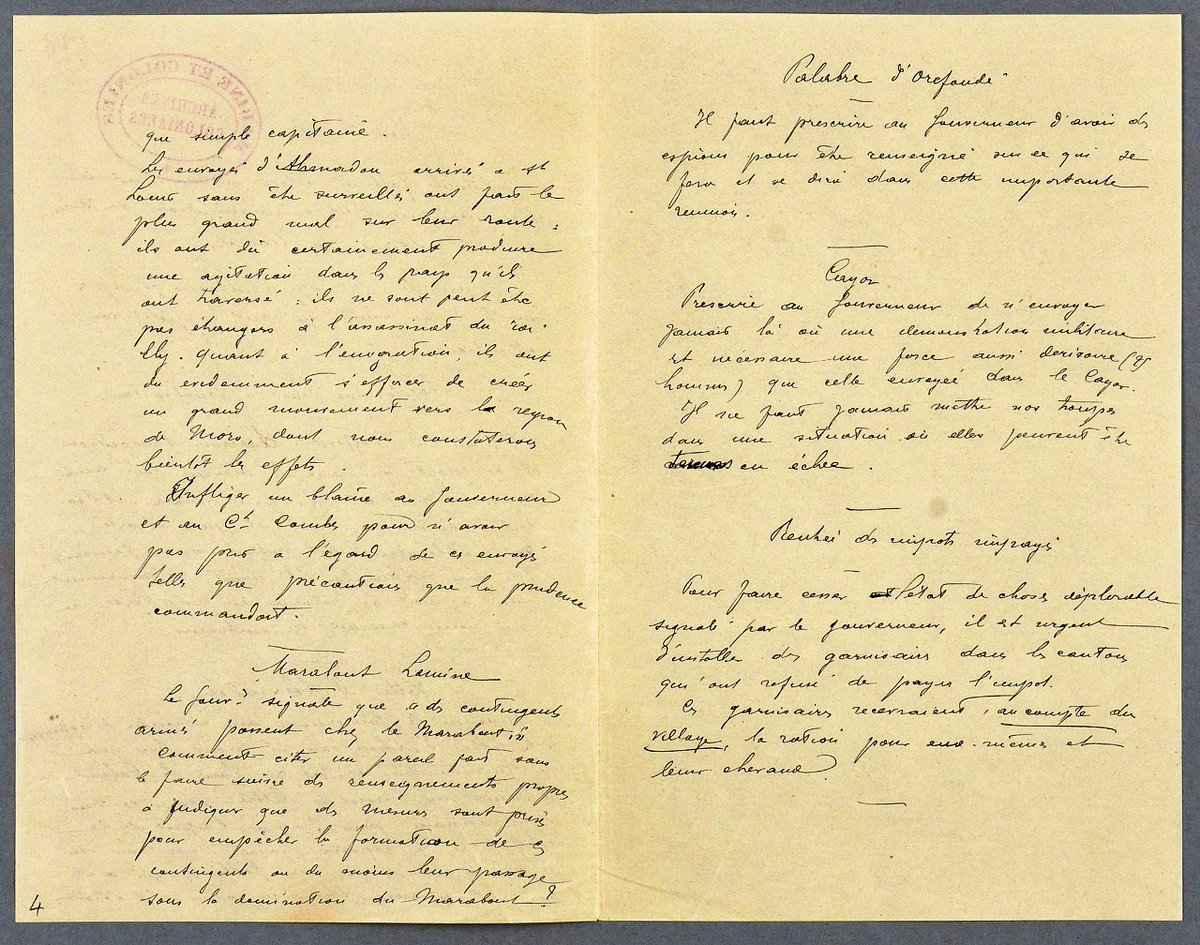 que simple capitaine.
Les envoyés d'Ahmadou arrivés à St
Louis sans être surveillés ont fait le
plus grand mal sur leur route :
ils ont dû certainement produire
une agitation dans le pays qu'ils
ont traversé : ils ne sont peut être
pas étrangers à l'assassinat du roi
Ely. Quant à l'émigration, ils ont
du évidemment s'efforcer de créer
un grand mouvement vers la région
de Nioro, dont nous constaterons
bientôt les effets.
Infliger un blâme au Gouverneur
et au Ct Combes pour n'avoir
pas pris à l'égard de ces envoyés
telles que précautions que la prudence
commandait.
Marabout Lamine
Le Gouvr signale que « des contingents
armés passent chez le Marabout »
Comment citer un pareil fait sans
le faire suivre de renseignements propres
à indiquer que des mesures sont prises
pour empêcher la formation de ces
contingents ou du moins leur passage
sous la domination du Marabout ?
4
Palabre d'Orefondé
Il faut prescrire au Gouverneur d'avoir des
espions pour être renseigné sur ce qui se
fera et se dira dans cette importante
réunion.
Cayor
Prescrire au Gouverneur de n'envoyer
jamais là où une démonstration militaire
est nécessaire une force aussi dérisoire (
hommes) que celle envoyée dans le Cayor.
Il ne faut jamais mettre nos troupes
dans une situation où elles peuvent être
en échec.
Rentrée des impôts impayés
Pour faire cesser l'état de choses déplorable
signalé par le Gouverneur, il est urgent
d'installer des garnisaires dans les cantons
qui ont refusé de payer l'impôt.
Ces garnisaires recevraient, au compte du
village, la ration pour eux-mêmes et
leur chevaux.
MARINE ET COLONIES
ARCHIVES
COLONIALES